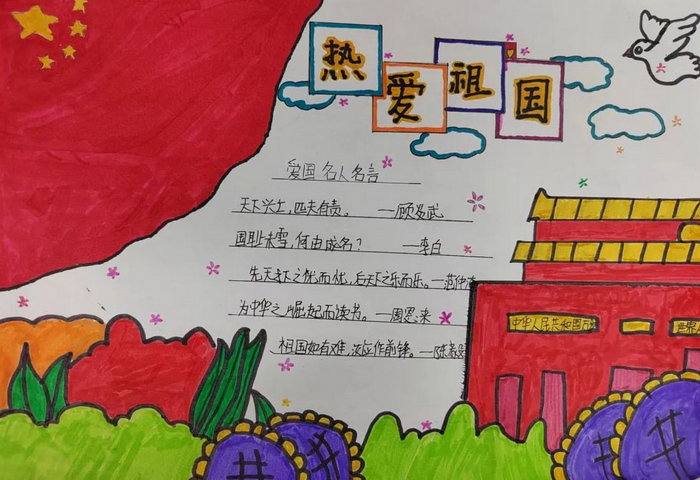 热爱祖国
爱国名人名言
天下兴亡,匹夫有责。 —顾炎武
国耻未雪,何由成名? —李白
先天下之忧而忧,后天下之乐而乐。—范仲淹
为中华之崛起而读书。—周恩来
祖国如有难,汝应作前锋。—陈毅
中华人民共和国万
世界人